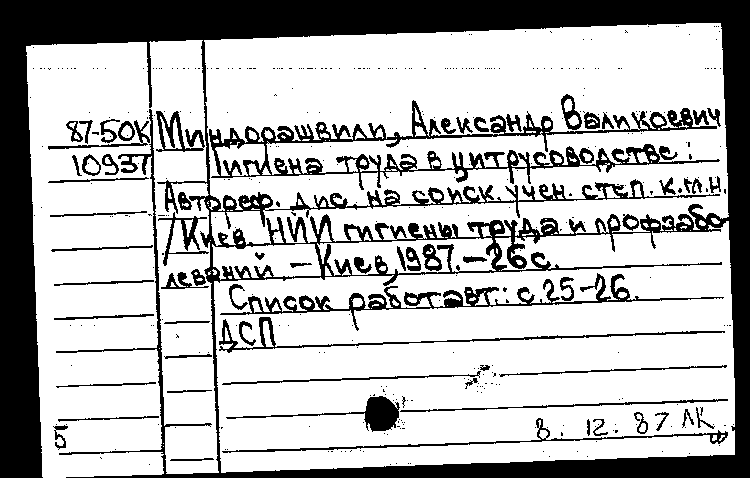 87-50К Миндорашвили, Александр Валикоевич
10937 Гигиена труда в цитрусоводстве:
Автореф. дис. на соиск. учен. степ. к.м.н.
/Киев. НИИ гигиены труда и профзабо-
леваний. – Киев, 1987. – 26 с.
Список работ авт.: с. 25-26.
ДСП
5 8. 12. 87 ЛК